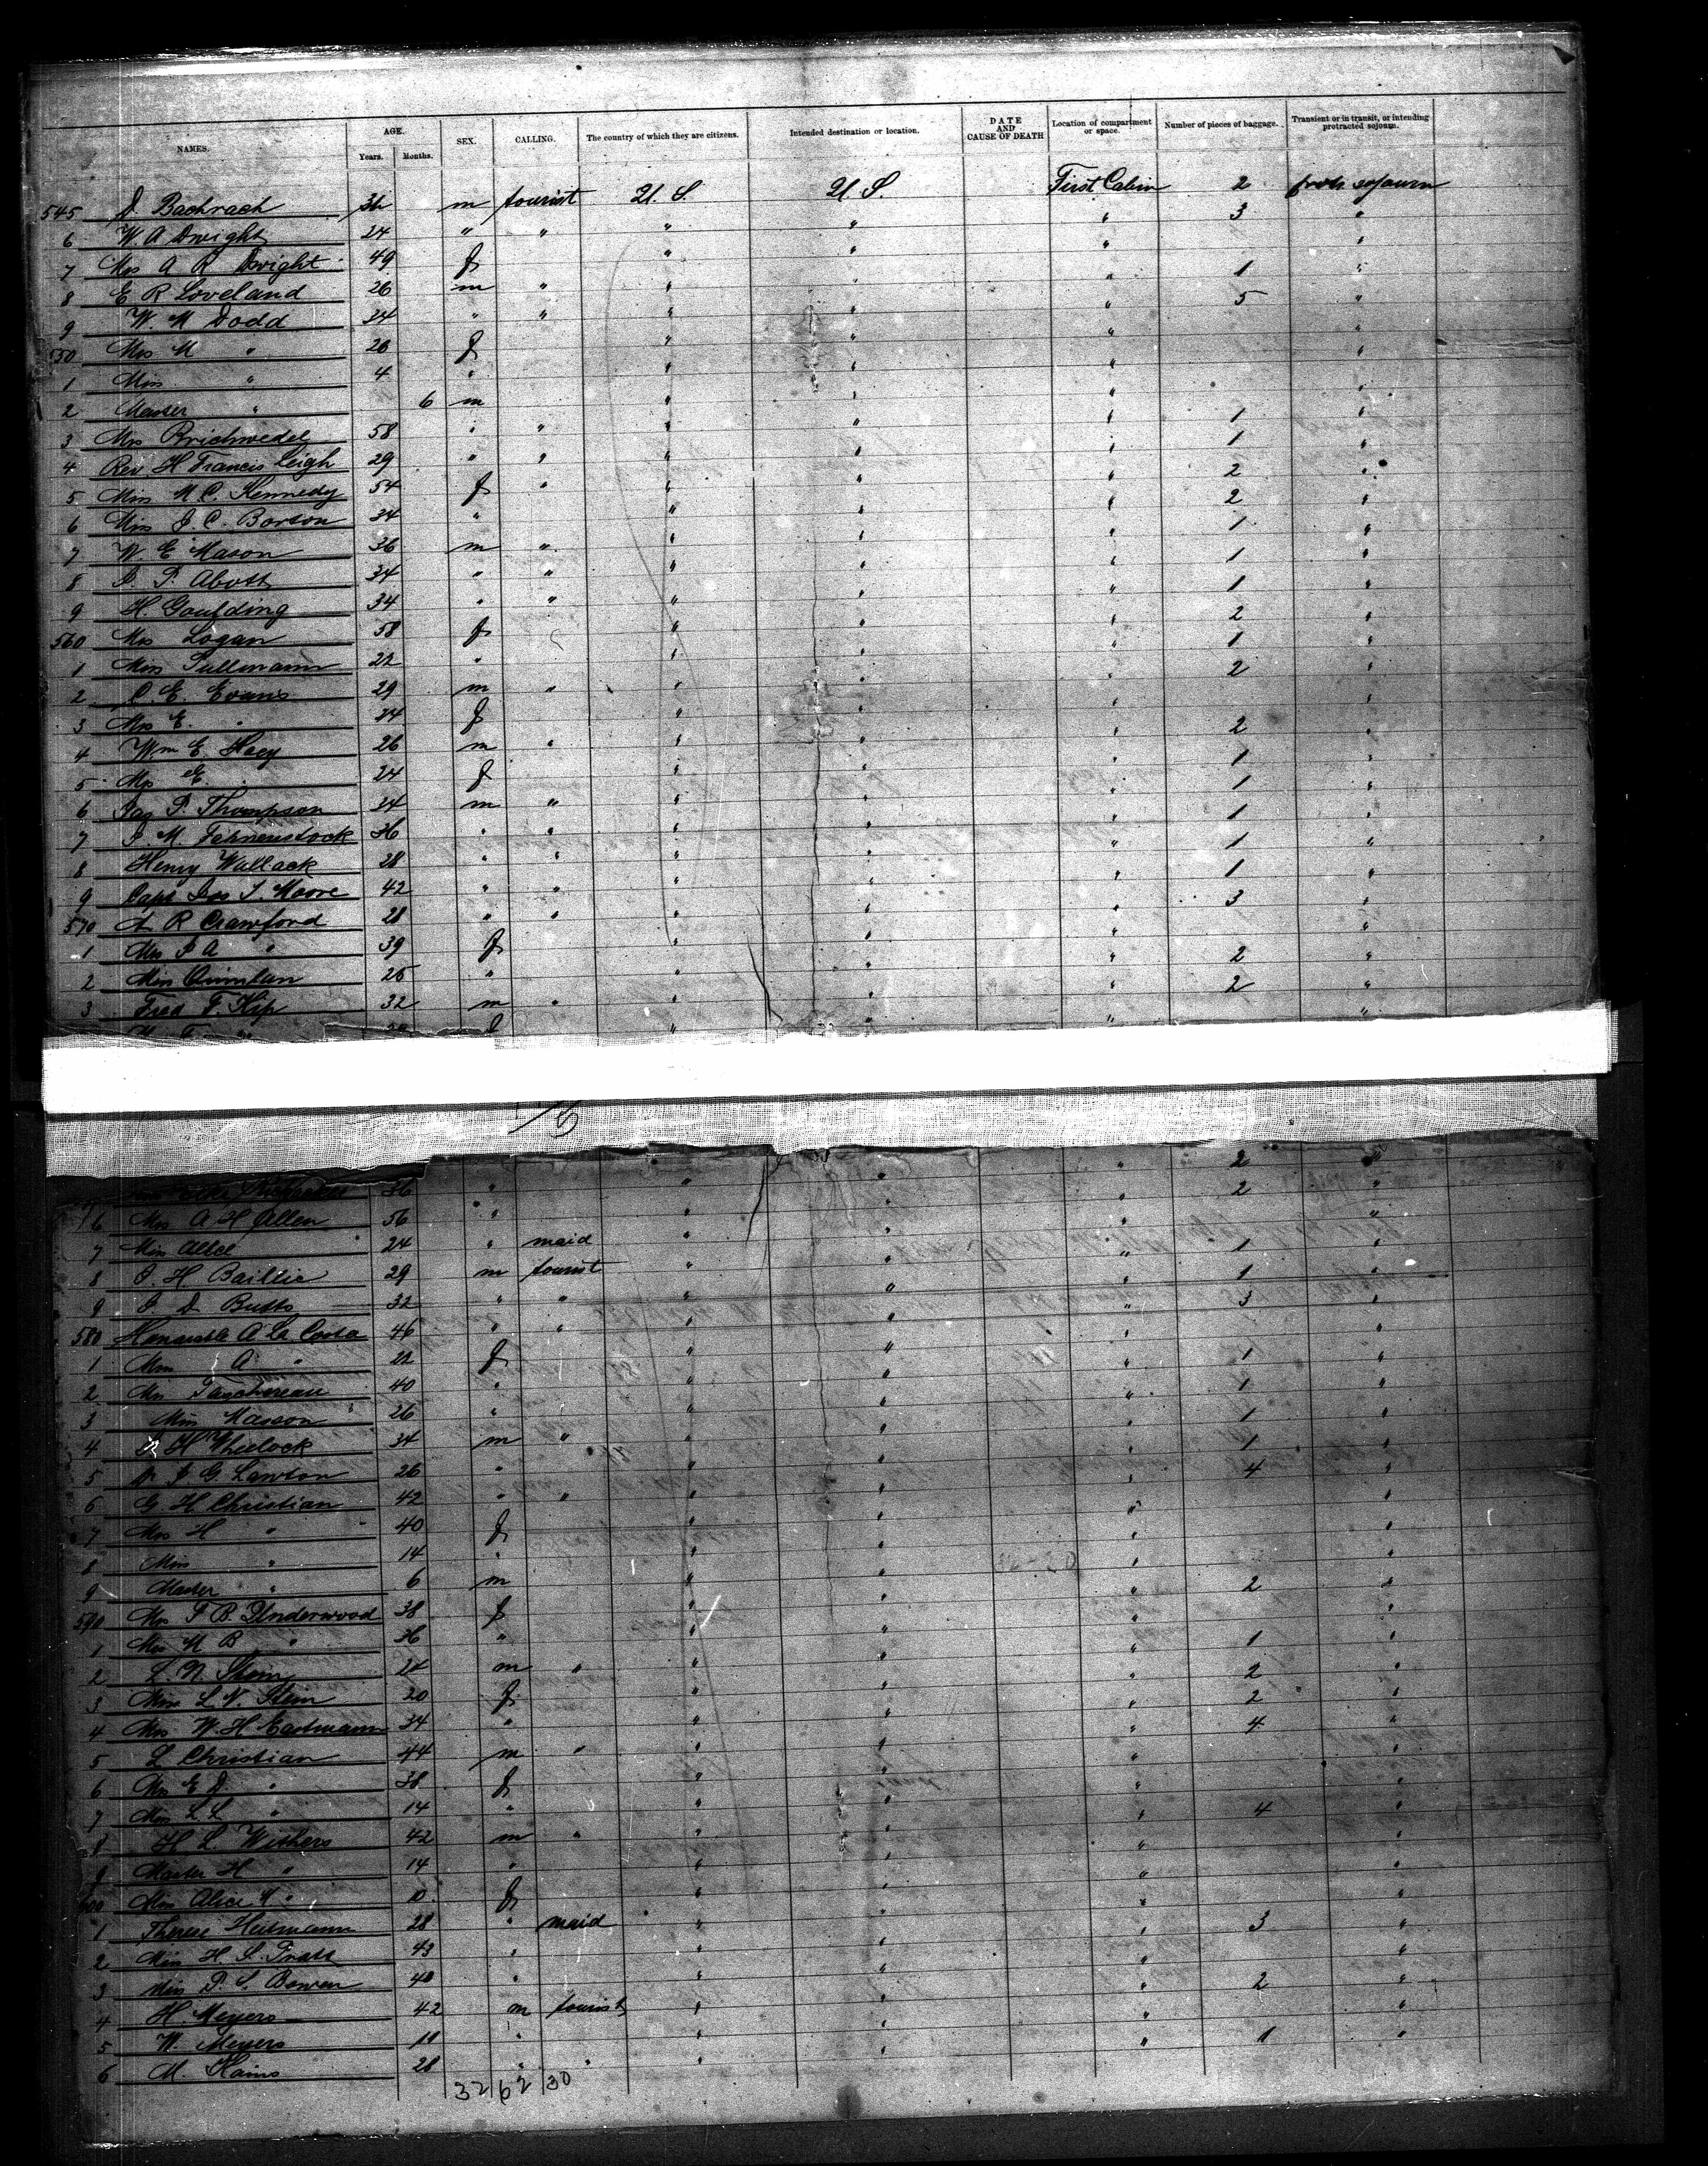 NAMES. AGE. Years. Months. SEX. CALLING. The country of which they are citizens. Intended destination or location. DATE AND CAUSE OF DEATH Location of compartment or space. Number of pieces of baggage. Transient or in transit, or intending protracted sojourn.
545 Bachrach m tourist U.S. U.S. First Cabin 2 sojourn
6 W. A Dwight 24 " " " " " 3 "
7 Mrs A R Dwight 49 f " " " "
8 E R Loveland 26 m " " " " 1 "
9 W. M Dodd 24 " " " " " 5 "
550 Mrs M " 26 f " " " "
1 Miss " 4 " " " " "
2 Master " 6 m " " " "
3 Mrs 58 " " " " " 1 "
4 Rev. H Francis Leigh 29 " " " " " 1 "
5 Miss M. C. Kennedy 54 f " " " " 2 "
6 Mrs J. C. Borton 34 " " " " 2 "
7 W. E Mason 36 m " " " " 1 "
8 J. P. Abott 34 " " " " " 1 "
9 H Goulding 34 " " " " " 1 "
560 Mrs Logan 58 f " " " 2 "
1 Miss 22 " " " " 1 "
2 C. E. Evans 29 m " " " " 2 "
3 Mrs E. " 24 f " " " "
4 Wm E Hoey 26 m " " " " 2 "
5 Mrs E. " 24 f " " " 1 "
6 Jas P. Thompson 34 m " " " " 1 "
7 J. M. Fahnenstock 36 " " " " " 1 "
8 Henry Wallack 28 " " " " " 1 "
9 Capt Jas S. Moore 42 " " " " " 1 "
570 A R Crawford 28 " " " " " 3 "
1 Mrs J A " 39 f " " " "
2 Miss Quinlan 25 " " " " 2 "
3 Fred F. Kip 32 m " " " " 2 "
" " " "
15
36 " " " " 2 "
76 Mrs A H Allen 56 " " " " 2 "
7 Miss Allce 24 " maid " " " "
8 J. H. Baillie 29 m tourist " " " 1 "
9 J. D Butts 32 " " " " " 1 "
580 A La Costa 46 " " " " " 3 "
1 A " 22 f " " " "
2 Taschereau 40 " " " " 1 "
3 Miss Masson 26 " " " " 1 "
4 H Wheelock 34 m " " " " 1 "
5 Dr J G. Lawton 26 " " " " 1 "
6 G H Christian 42 " " " " " 4 "
7 Mrs H " 40 f " " " "
8 Miss " 14 " " " " "
9 Master " 6 m " " " "
590 Mrs F. B. Underwood 38 f " " " 2 "
1 M B " 36 " " " " "
2 L. N Stein 24 m " " " " 1 "
3 L. N. Stein 20 f " " " 2 "
4 Mrs W. H Eastmann 34 " " " " 2 "
5 L Christian 44 m " " " " 4 "
6 Mrs E D. " 38 f " " " "
7 Miss L. L " 14 " " " " "
8 H L. Withers 42 m " " " " 4 "
9 Master H " 14 " " " " "
600 Miss Alice " 10 f " " " "
1 Therese 28 " maid " " " "
2 Miss H. S. Pratt 43 " " " " 3 "
3 Miss P. S. Bowen 40 " " " " "
4 H. Meyers 42 m tourist " " " 2 "
5 W. Meyers " " " " "
6 M. Hains 28 " " " " " 1 "
32 62 30